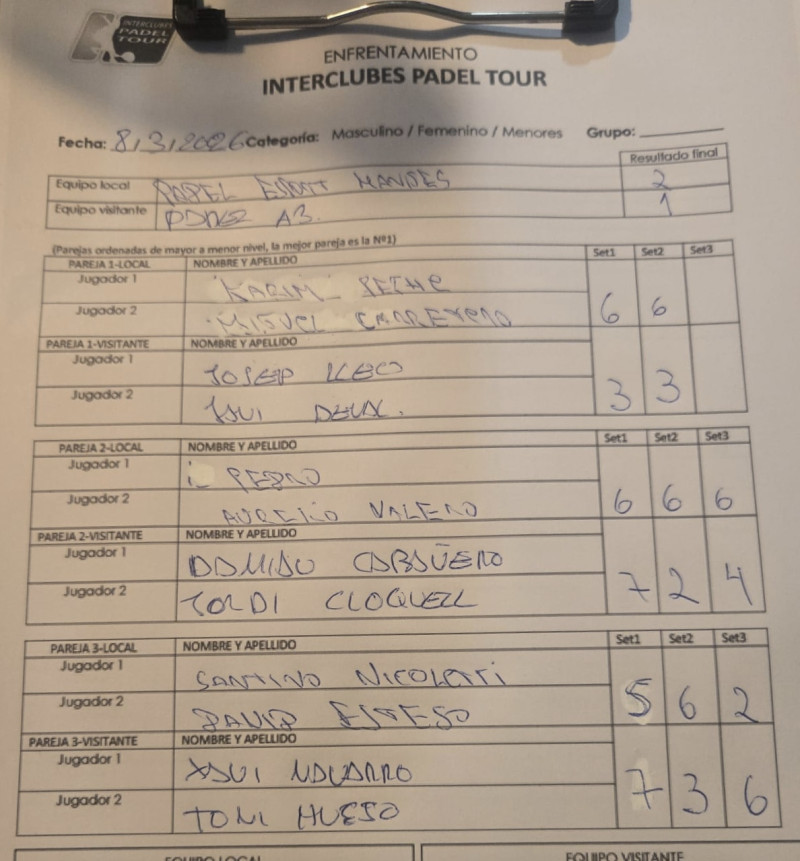 INTERCLUBES
PADEL
TOUR
ENFRENTAMIENTO
INTERCLUBES PADEL TOUR
Fecha: 8/3/2026 Categoría: Masculino / Femenino / Menores Grupo:
Resultado final
Equipo local PADEL ESPORT MANDES 2
Equipo visitante A3. 1
(Parejas ordenadas de mayor a menor nivel, la mejor pareja es la Nº1)
PAREJA 1-LOCAL NOMBRE Y APELLIDO Set1 Set2 Set3
Jugador 1 KARIM
Jugador 2 MIGUEL CARRETERO 6 6
PAREJA 1-VISITANTE NOMBRE Y APELLIDO
Jugador 1 JOSEP LLEO
Jugador 2 XAVI 3 3
PAREJA 2-LOCAL NOMBRE Y APELLIDO Set1 Set2 Set3
Jugador 1 PEDRO
Jugador 2 AURELIO VALERO 6 6 6
PAREJA 2-VISITANTE NOMBRE Y APELLIDO
Jugador 1
Jugador 2 JORDI CLOQUELL 7 2 4
PAREJA 3-LOCAL NOMBRE Y APELLIDO Set1 Set2 Set3
Jugador 1 SANTINO NICOLETTI
Jugador 2 DAVID ESTESO 5 6 2
PAREJA 3-VISITANTE NOMBRE Y APELLIDO
Jugador 1 XAVI NAVARRO
Jugador 2 TONI HUESO 7 3 6
EQUIPO LOCAL EQUIPO VISITANTE